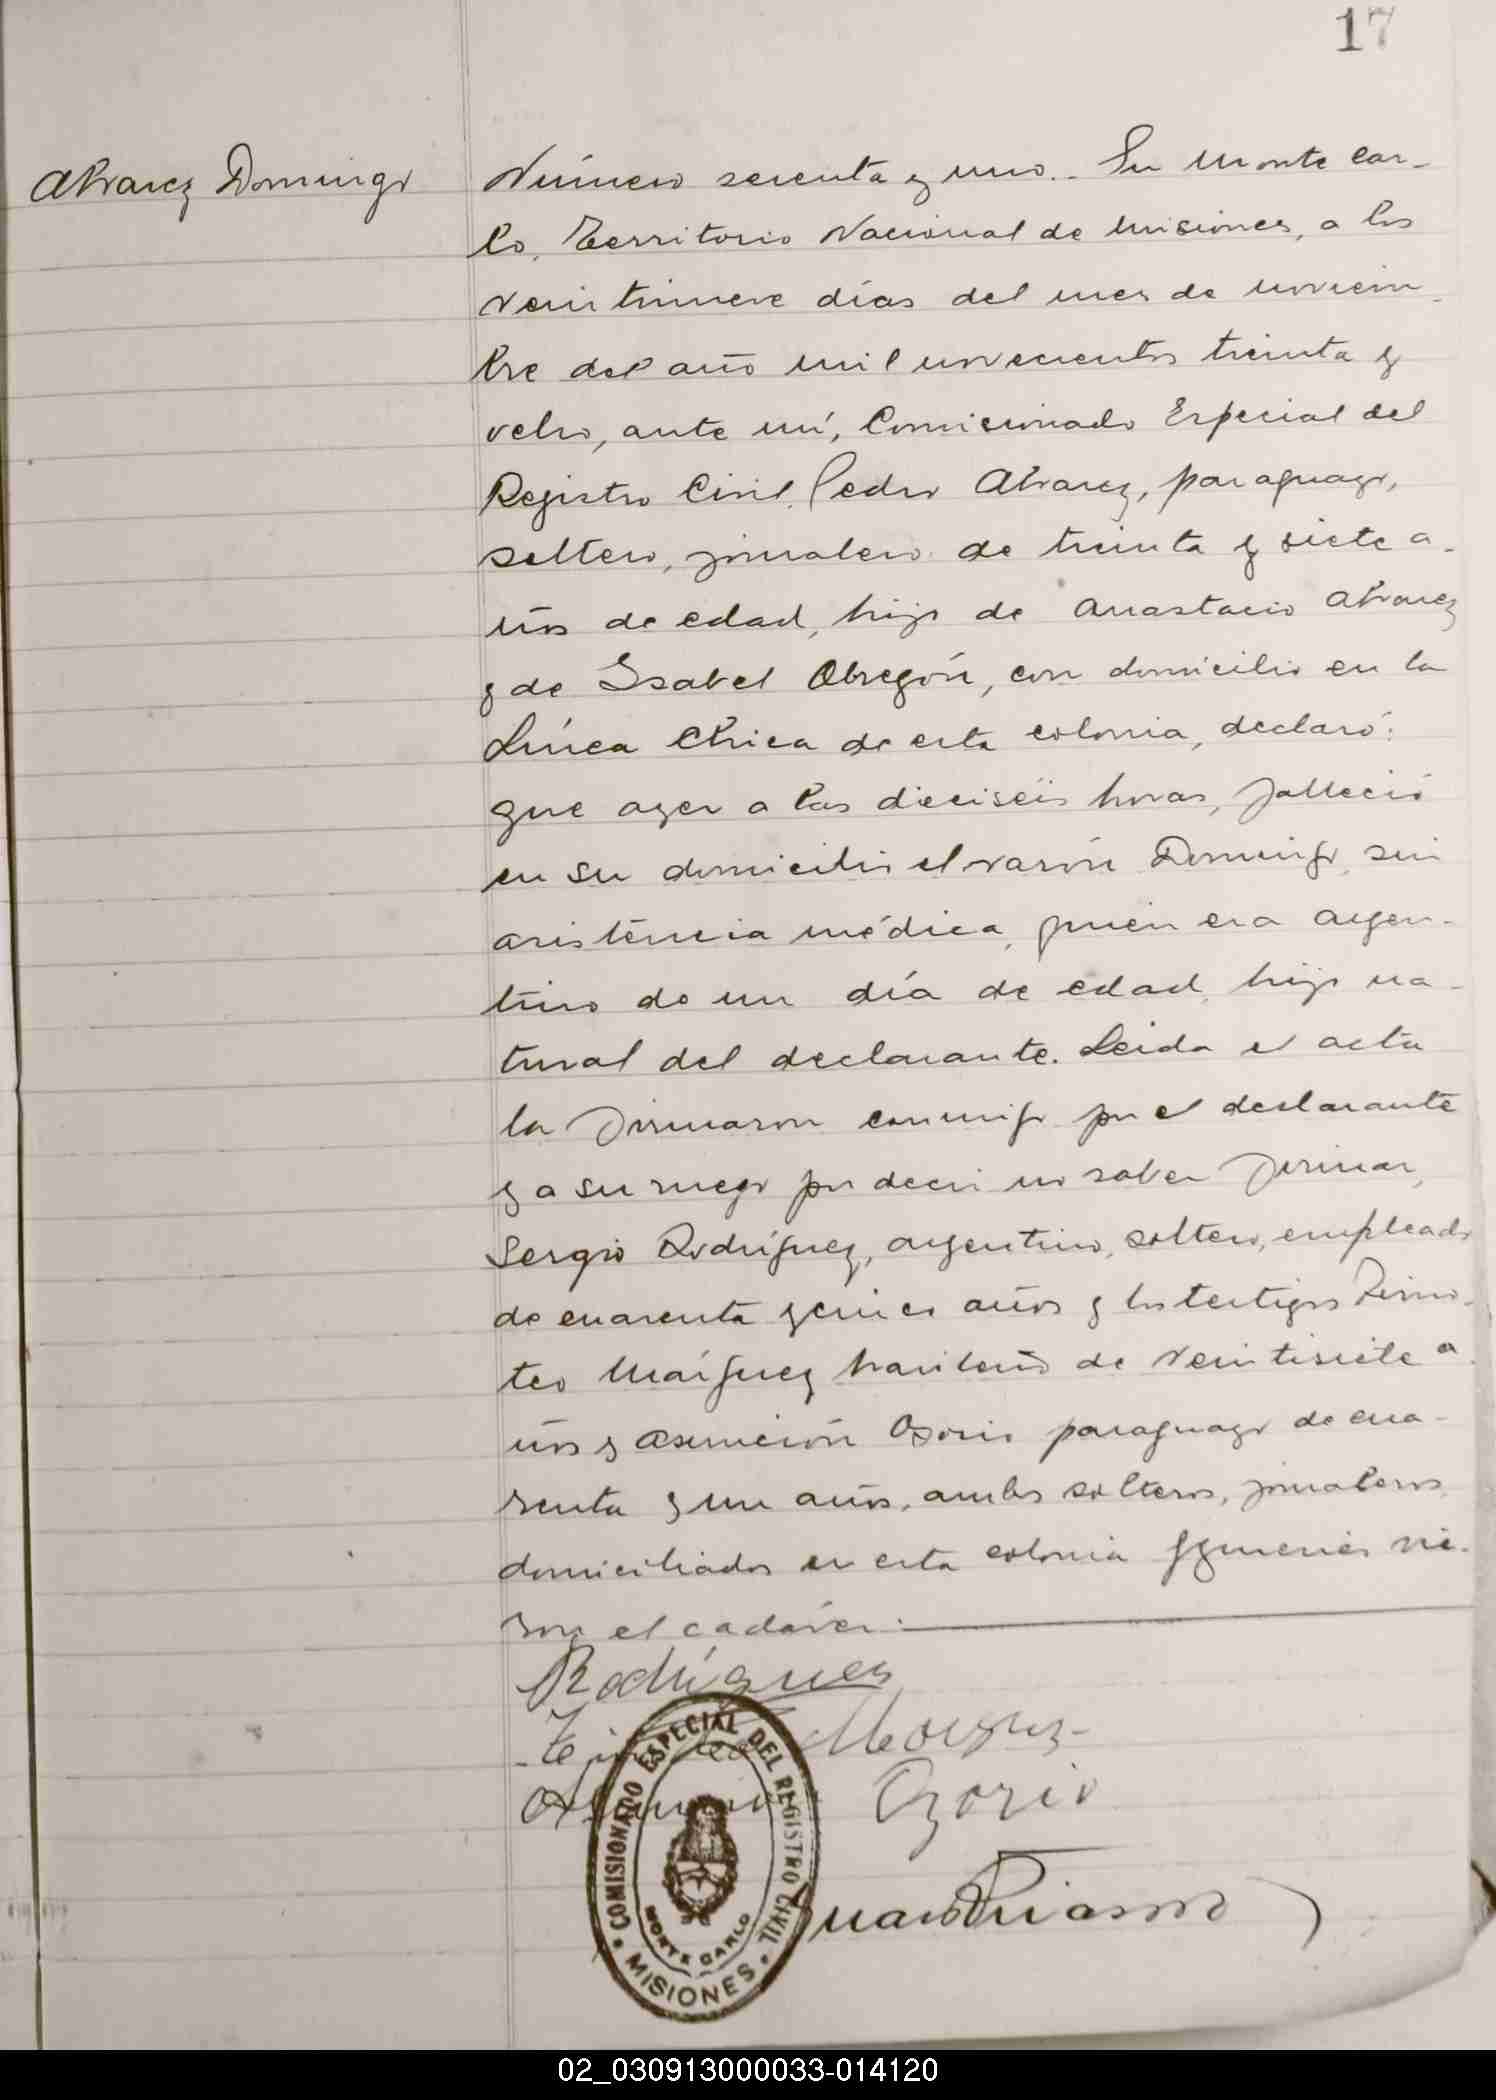 17
Alvarez Domingo
Número sesenta y uno.- En Monte Car-
lo, Territorio Nacional de Misiones, a los
veintinueve días del mes de noviem-
bre del año mil novecientos treinta y
ocho, ante mí, Comisionado Especial del
Registro Civil, Pedro Alvarez, paraguayo,
soltero, jornalero de treinta y siete a-
ños de edad, hijo de Anastacio Alvarez
y de Isabel Obregón, con domicilio en la
Línea Chica de esta colonia, declaró:
que ayer a las dieciséis horas, falleció
en su domicilio el varón Domingo, sin
asistencia médica, quien era argen-
tino de un día de edad, hijo na-
tural del declarante. Leida el acta
la firmaron conmigo por el declarante
y a su ruego por decir no saber firmar,
Sergio Rodríguez, argentino, soltero, empleado
de cuarenta y cinco años y los testigos Timo-
teo Maíguez brasileño de veintisiete a-
ños y Asunción Osorio paraguayo de cua-
renta y un años, ambos solteros, jornaleros
domiciliados en esta colonia y quienes vie-
ron el cadáver.
Rodríguez
Osorio
COMISIONADO ESPECIAL DEL REGISTRO CIVIL
MONTE CARLO
MISIONES
02_030913000033-014120